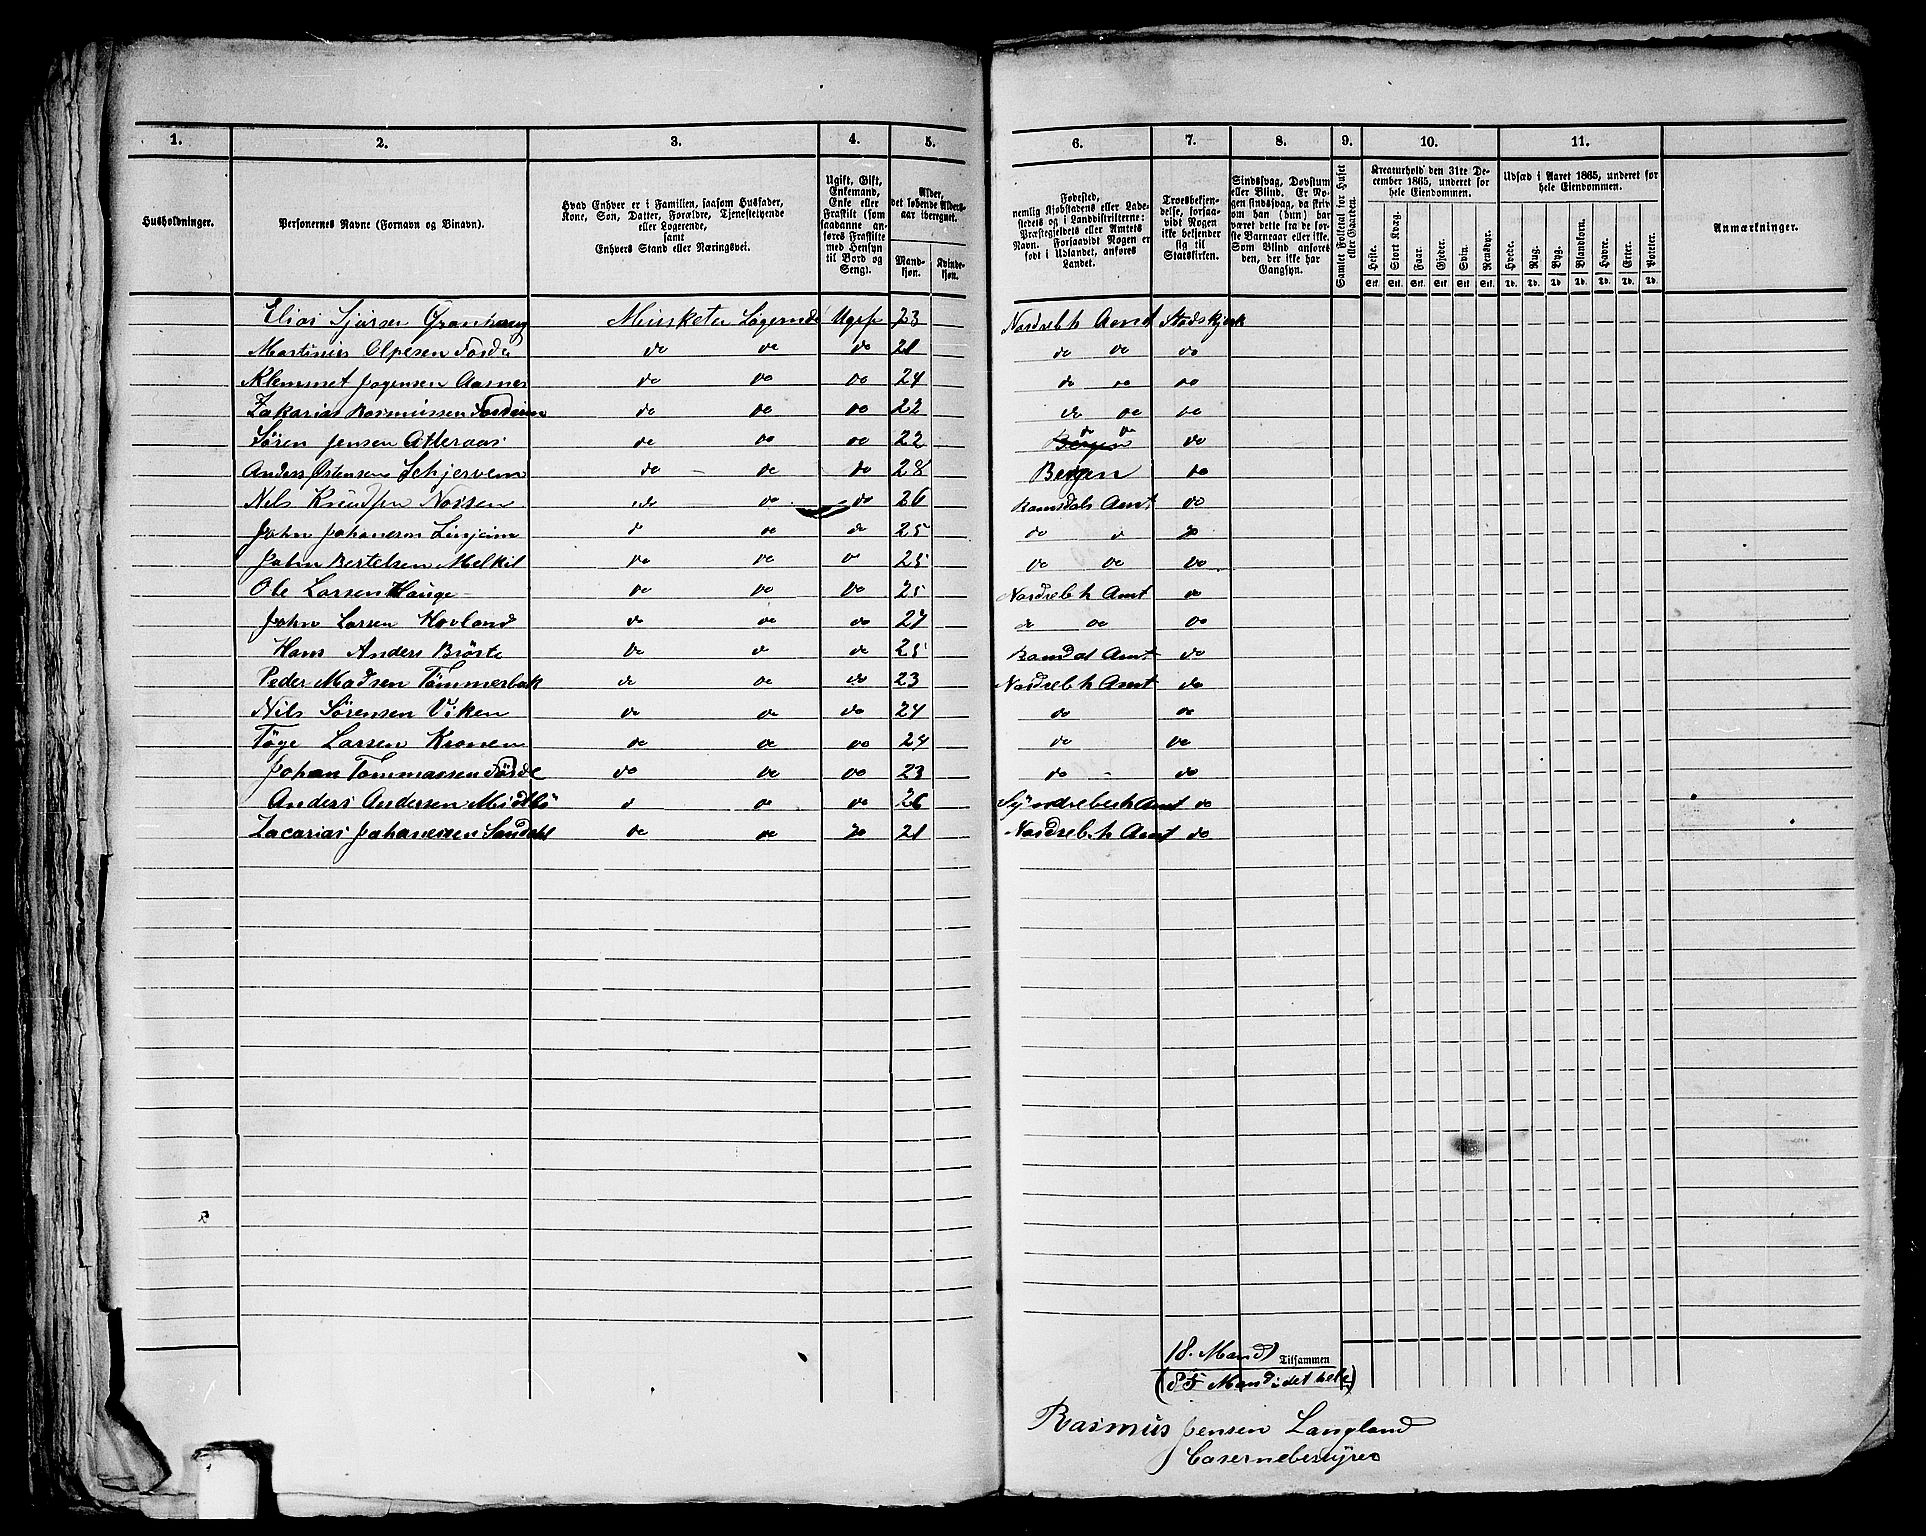 1. 2. 3. 4. 5. 6. 7. 8. 9. 10. 11.
Husholdninger.
Personernes Navne (Fornavn og Binavn).
Hvad Enhver er i Familien, saasom Husfader,
Kone, Søn, Datter, Forældre, Tjenestetyende
eller Logerende,
samt
Enhvers Stand eller Næringsvei.
Ugift, Gift,
Enkemand,
Enke eller
Fraskilt (som
saadanne an-
føres Fraskilte
med Hensyn
til Bord og
Seng).
Alder,
det løbende Alders-
aar iberegnet.
Mand-
kjøn.
Kvinde-
kjøn.
Fødested,
nemlig Kjøbstadens eller Lade-
stedets og i Landdistrikterne:
Præstegjeldets eller Amtets
Navn. Forsaavidt Nogen er
født i Udlandet, anføres
Landet.
Troesbekjen-
delse, forsaa-
vidt Nogen
ikke bekjender
sig til
Statskirken.
Sindssvag, Døvstum
eller Blind. Er No-
gen sindssvag, da skriv
om han (hun) har
været dette fra de før-
ste Barneaar eller ikke.
Som Blind anføres
den, der ikke har
Gangsyn.
Samlet Folketal for Huset
eller Gaarden.
Kreaturhold den 31te De-
cember 1865, underet for
hele Eiendommen.
Heste. Stort Kvæg. Faar. Gjeder. Svin. Rensdyr.
Stk. Stk. Stk. Stk. Stk. Stk.
Udsæd i Aaret 1865, underet for
hele Eiendommen.
Hvede. Rug. Byg. Blandkorn. Havre. Erter. Poteter.
Td. Td. Td. Td. Td. Td. Td.
Anmærkninger.
Elias Sjørsen Musketer Logerende Ugift 23 Nordreb h Amt Statskjerk
Martinius Olpesen Førde do do do 21 do do do
Klemmet Jogensen Aarnes do do do 24 do do do
Zakarias Rasmussen do do do 22 do do do
Søren Jensen Atteraas do do do 22 Bergen do do do
Anders Schjervem do do do 28 Bergen do
Nils Knudsen Nossen do do do 26 Romsdals Amt do
John Johanesen Linjeim do do do 25 do do do
John Bertelsen Melkil do do do 25 do do do
Ole Larsen Hauge do do do 25 Nordreb h Amt do
John Larsen Hovland do do do 27 do do do
Hans Anders Brøste do do do 25 Romsdal Amt do
Peder Madsen Tømmerbak do do do 23 Nordreb h Amt do
Nils Sørensen Viken do do do 24 do do
Tøge Larsen Kronen do do do 24 do do
Johan Tommassen Førde do do do 23 do do
Anders Andersen Midtbø do do do 26 Syndrebech Amt do
Zacarias Johanessen Sandahl do do do 21 Nordreb. h Amt do
18. Mand Tilsammen
(85 Mand i det hele)
Rasmus Jensen Langland
Casernebestyrer